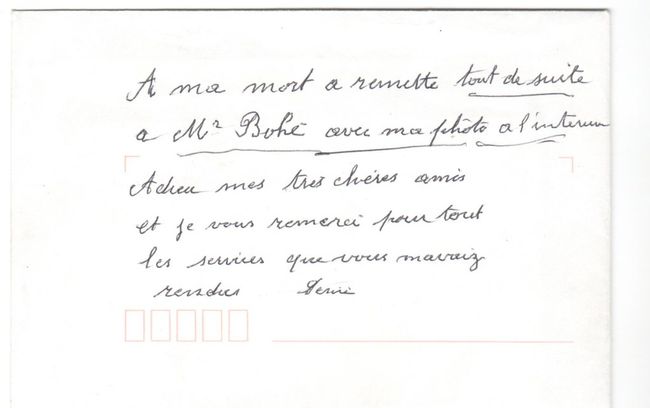 A ma mort a remettre tout de suite
a Mr Bohé avec ma photo a l'interieur
Adieu mes tres chères amis
et je vous remerci pour tout
les services que vous mavaiz
rendus